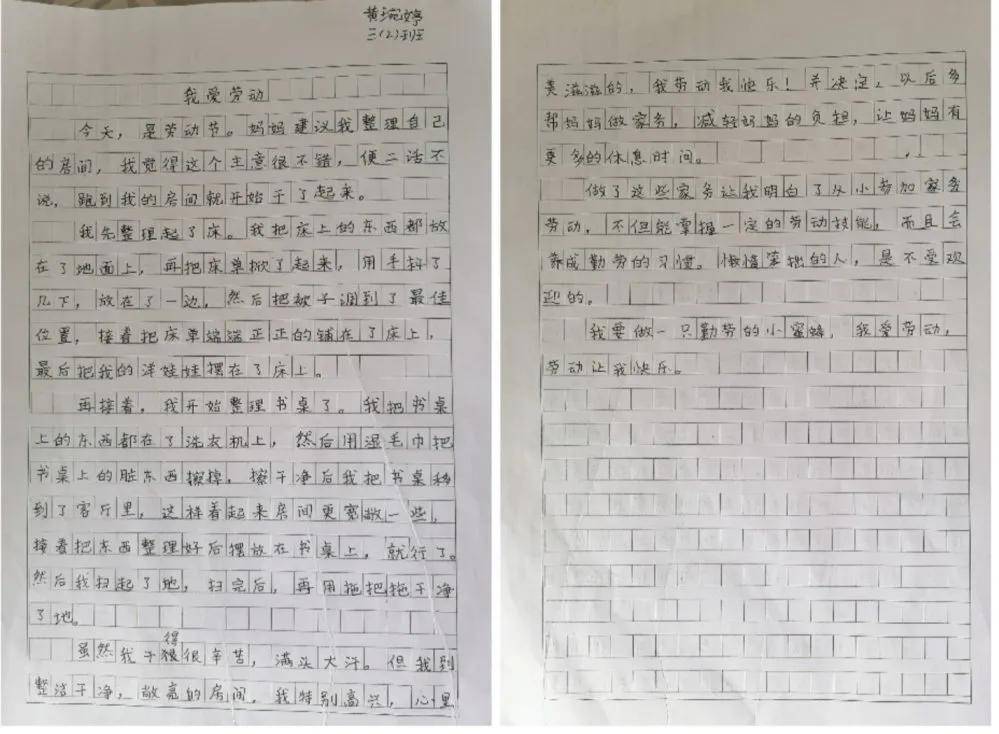 黄琬婷
三(2)班
我爱劳动
今天,是劳动节。妈妈建议我整理自己
的房间,我觉得这个主意很不错,便二话不
说,跑到我的房间就开始干了起来。
我先整理起了床。我把床上的东西都放
在了地面上,再把床单掀了起来,用手抖了
几下,放在了一边,然后把被子调到了最佳
位置,接着把床单端端正正的铺在了床上,
最后把我的洋娃娃摆在了床上。
再接着,我开始整理书桌了。我把书桌
上的东西都在了洗衣机上,然后用湿毛巾把
书桌上的脏东西擦掉,擦干净后我把书桌移
到了客厅里,这样看起来房间更宽敞一些,
接着把东西整理好后摆放在书桌上,就行了。
然后我扫起了地,扫完后,再用拖把拖干净
了地。
虽然我干得很辛苦,满头大汗。但我到
整洁干净,敞亮的房间,我特别高兴,心里
美滋滋的,我劳动我快乐!并决定,以后多
帮妈妈做家务,减轻妈妈的负担,让妈妈有
更多的休息时间。
做了这些家务让我明白了从小参加家务
劳动,不但能掌握一定的劳动技能,而且会
养成勤劳的习惯。懒惰笨拙的人,是不受欢
迎的。
我要做一只勤劳的小蜜蜂,我爱劳动,
劳动让我快乐。